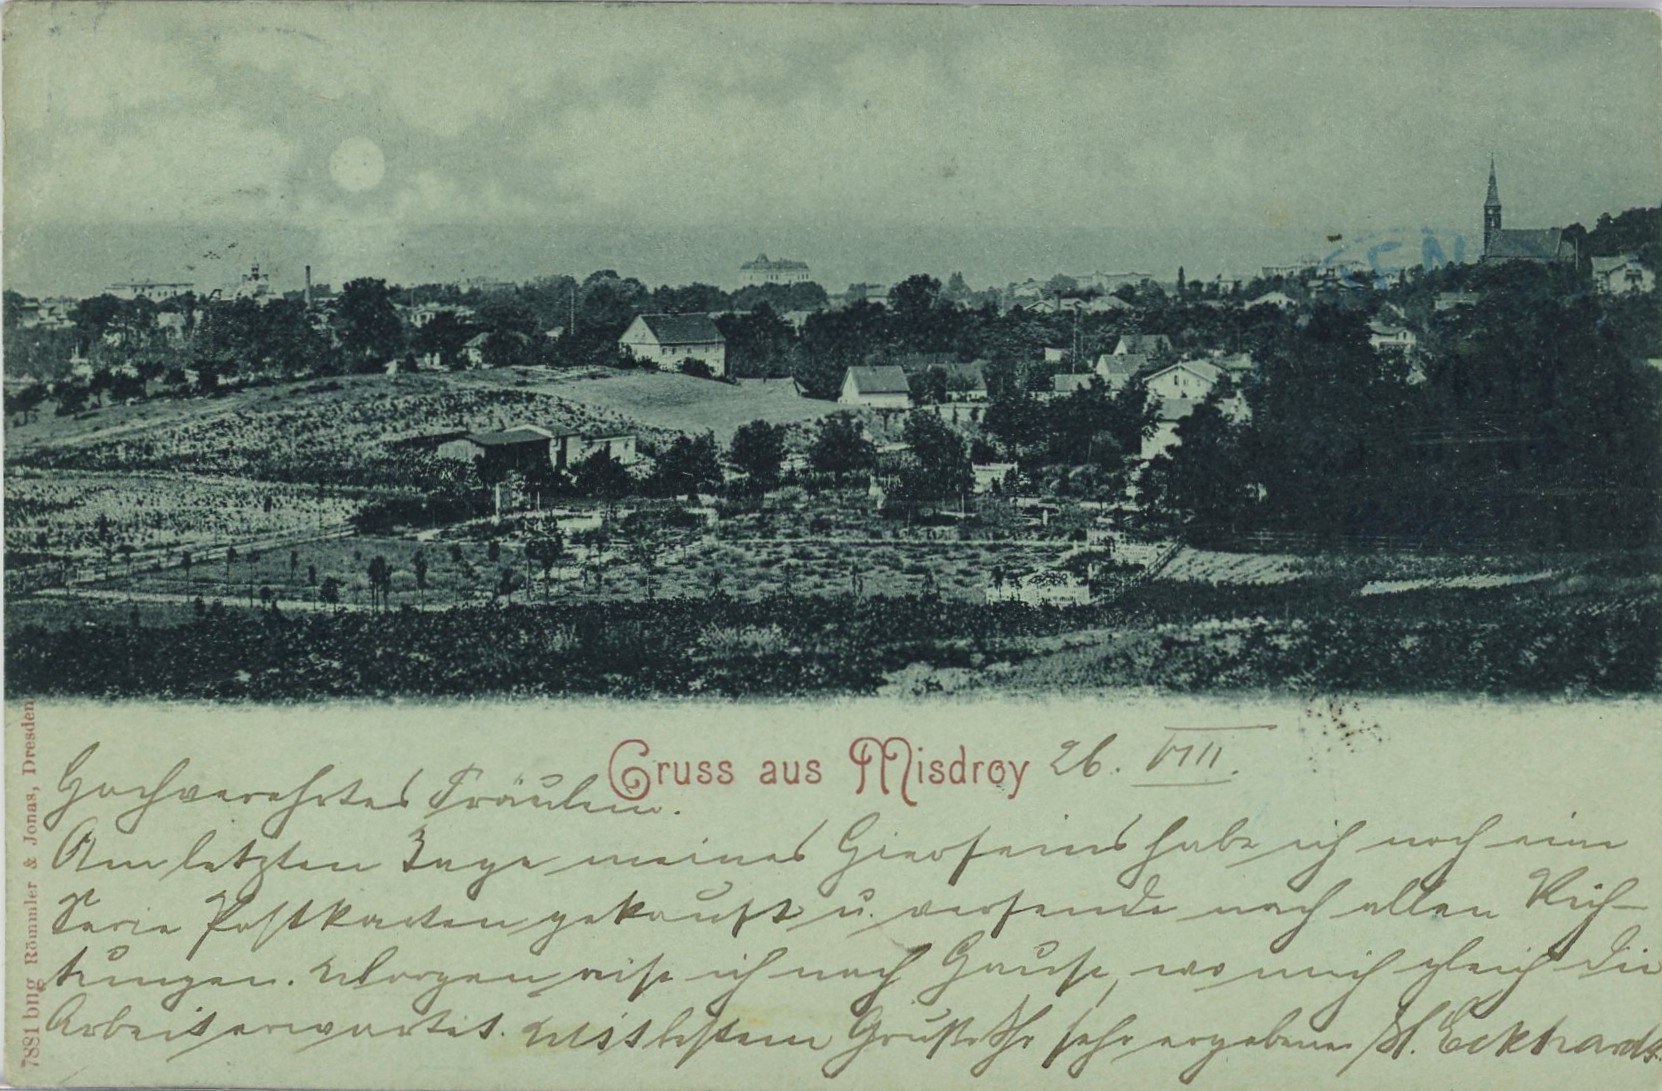 Gruss aus Misdroy 26. VIII.
Hochverehrtes Fräulein.
Am letzten Tage meines Hierseins habe ich noch eine
Serie Postkarten gekauft u. versende nach allen Rich-
tungen. Morgen reise ich nach Hause, wo mich gleich die
Arbeit erwartet. bestem Gruss Ihr sehr ergebener H. Eckhardt.
7881 bng Römmler & Jonas, Dresden